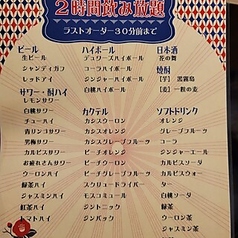 2時間飲み放題
ラストオーダー30分前まで
ビール
生ビール
シャンディガフ
レッドアイ
サワー・酎ハイ
レモンサワー
白桃サワー
コーラサワー
青リンゴサワー
男梅サワー
カルピスサワー
お疲れさんサワー
ウーロンハイ
緑茶ハイ
ジャスミンハイ
紅茶ハイ
トマトハイ
ハイボール
デュワーズハイボール
コークハイボール
ジンジャーハイボール
白桃ハイボール
カクテル
カシスウーロン
カシスオレンジ
カシスグレープフルーツ
ピーチウーロン
ピーチオレンジ
ピーチグレープフルーツ
スクリュードライバー
モスコミュール
ジントニック
ジンバック
日本酒
花の舞
焼酎
【芋】黒霧島
【麦】一粒の麦
ソフトドリンク
オレンジ
グレープフルーツ
コーラ
ジンジャーエール
カルピス
カルピスソーダ
トマト
白桃ソーダ
緑茶
ウーロン茶
ジャスミン茶
紅茶